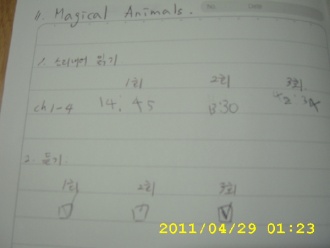 11. Magical Animals.
1. 소리내어 읽기
1회 2회 3회
ch1-4 14:45 13:30
2. 듣기
1회 2회 3회
2011/04/29 01:23